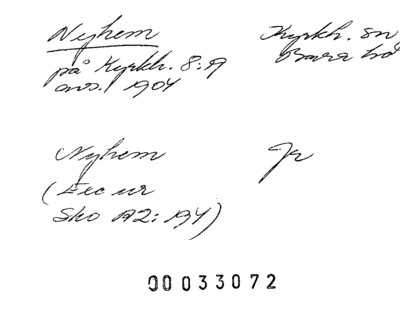 Nyhem
Kyrkh. sn
på Kyrkh. 8:19
Bara hd
avs. 1904
Nyhem
Jr
(Exc ur
Sko A2: 194)
00033072